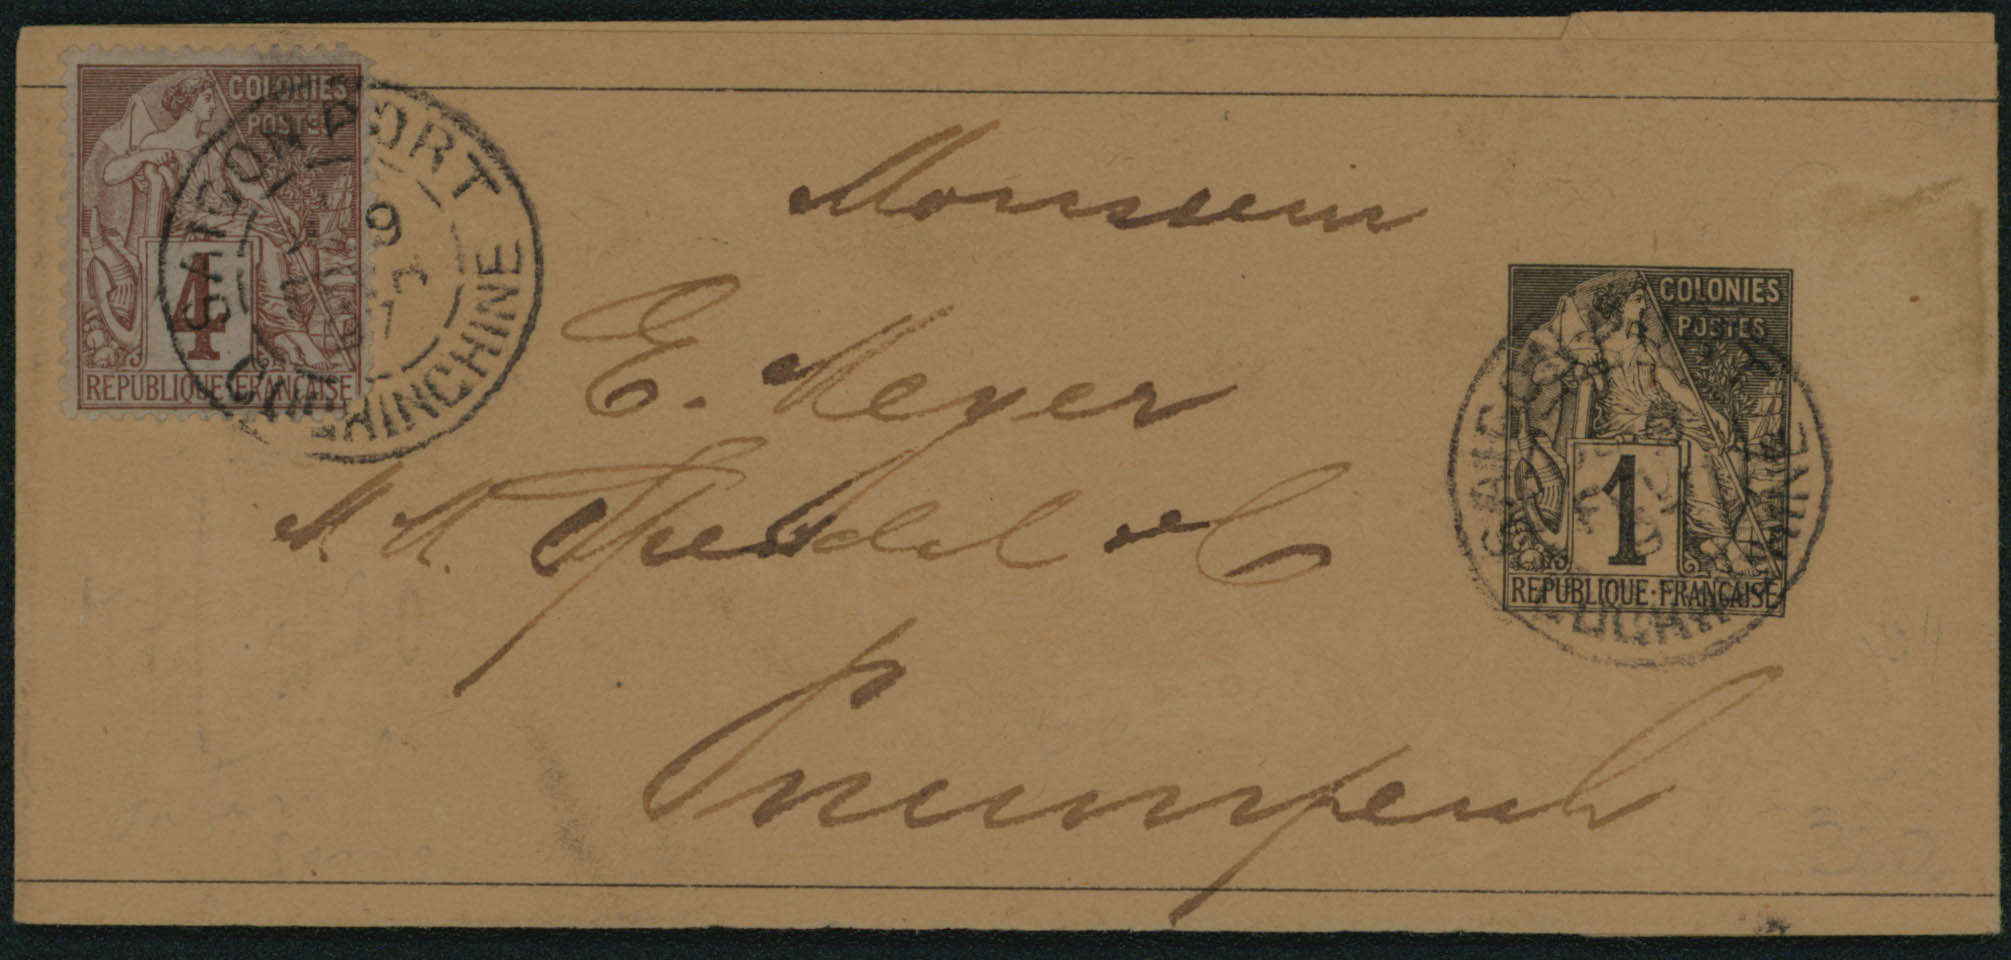 COLONIES
POSTES
4
REPUBLIQUE FRANÇAISE
SAIGON PORT
COCHINCHINE
Monsieur
E. Meyer
M.M. Speidel & C
à
Pnumpenh
COLONIES
POSTES
1
REPUBLIQUE·FRANÇAISE
300